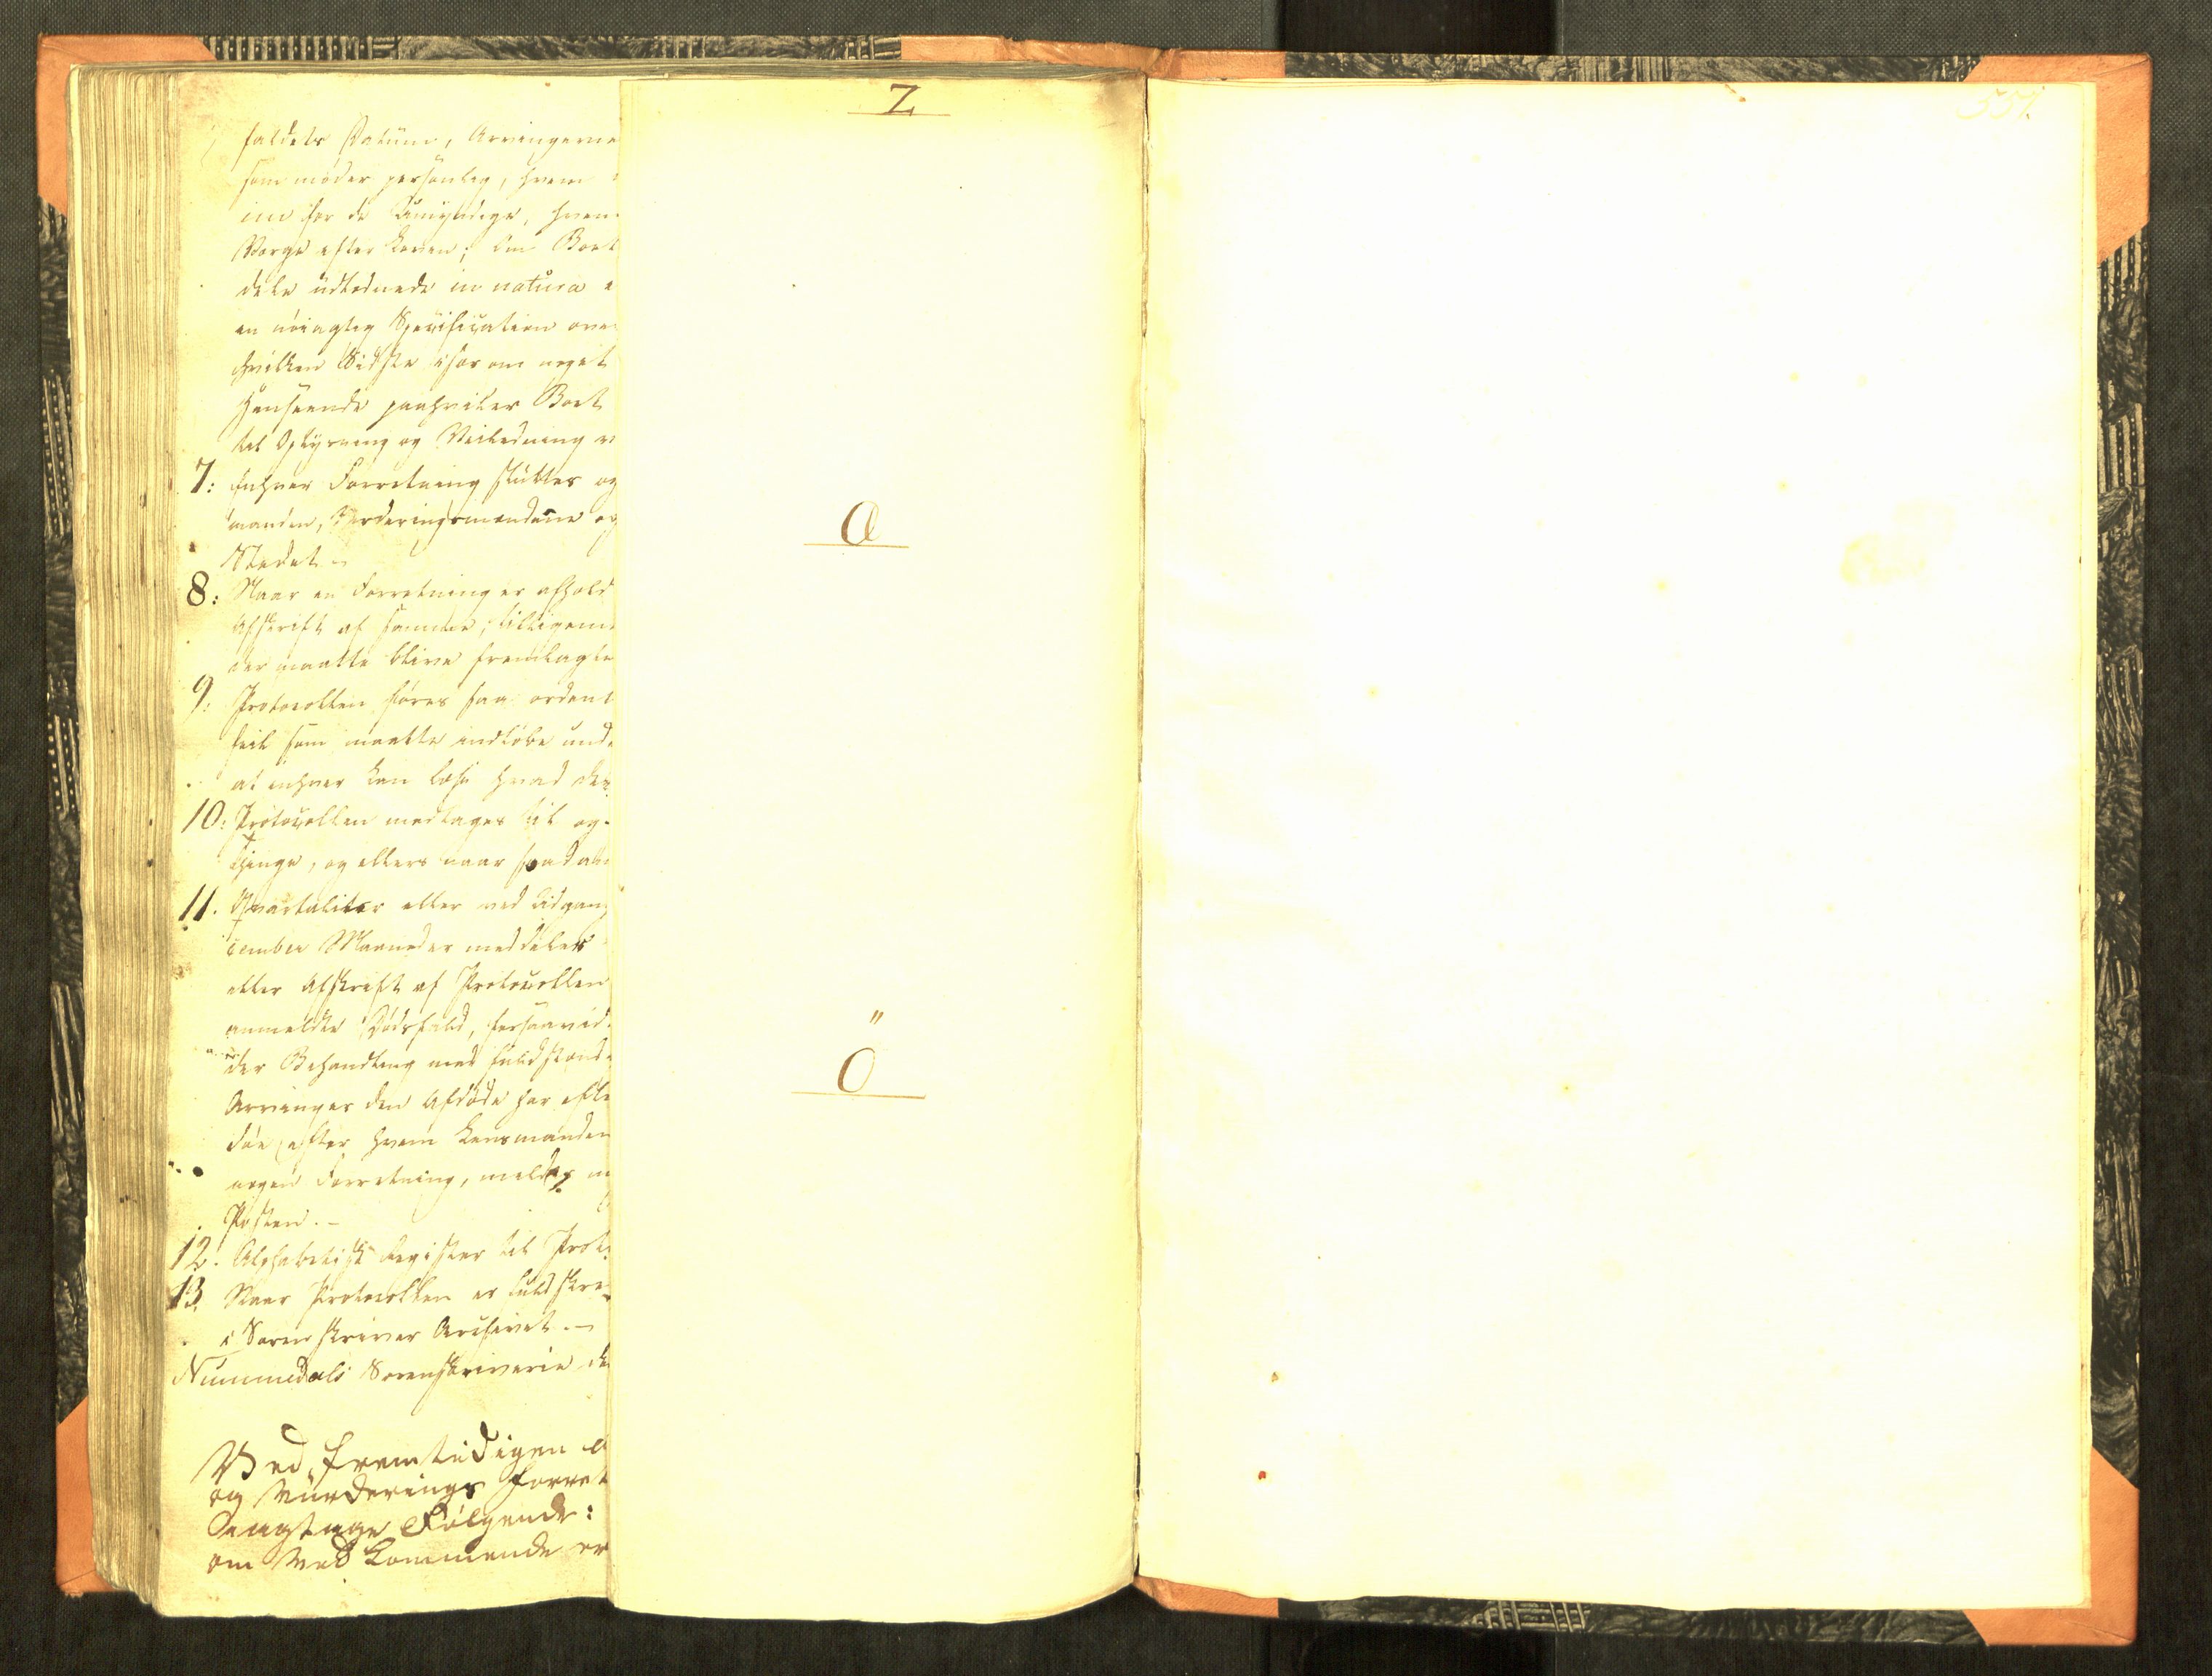 faldets Datum, Arvingerne
som møder personlig, hvem
in for de Umyndige, hvem
Værge efter Loven; om Boet
dele udlodnede in natura e
en nøiagtig Specification ove
hvilken Sidste især om noget
Henseende paahviler Boet
til Oplysning og Veiledning v
7: Enhver Forretning sluttes og
manden, Vurderingsmændene og
Stedet.
8: Naar en Forretning er afhold
Afskrift af samme, tilligem
der maatte blive fremlagte
9: Protocollen føres saa ordent
feil som maatte indløbe und
at enhver kan læse hvad der
10: Protocollen medtages til og
Thinge, og ellers naar saadan
11. Qvartaliter eller ved Udgang
cember Maaneder meddeles
eller Afskrift af Protocollen
anmeldte Dødsfald, forsaavid
der Behandling med fuldstænd
Arvinger den Afdøde har efte
døe efter hvem Lensmanden
nogen Forretning, meldes
Posten.
12. Alphabetisk Register til Proto
13. Naar Protocollen er fuldskre
i Sorenskriver Archivet.
Nummedals Sorenskriverie de
Ved fremtidigen
og Vurderings Forret
iagtage Følgende:
om Vedkommende er
Z
Æ
Ö
551.